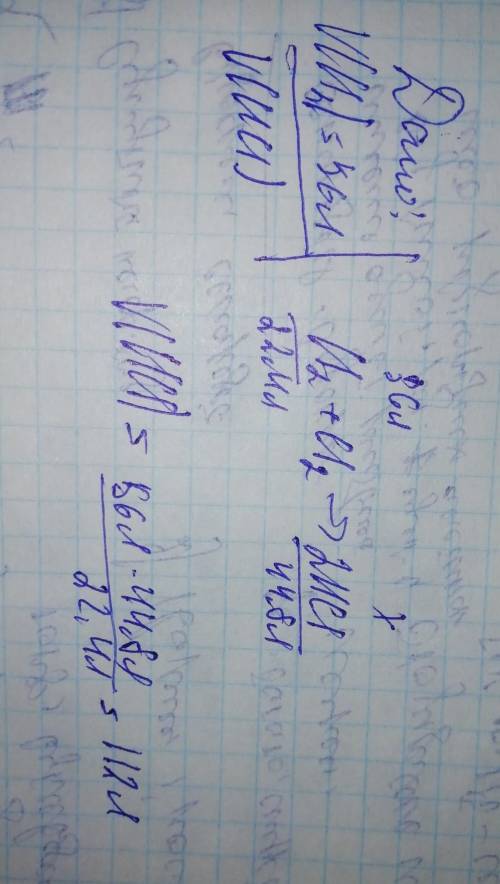 Дано:
V(H₂) = 56л
V(HCl)
56л x
H₂ + Cl₂ → 2HCl
22,4л 44,8л
V(HCl) = 56л · 44,8л / 22,4л = 112л